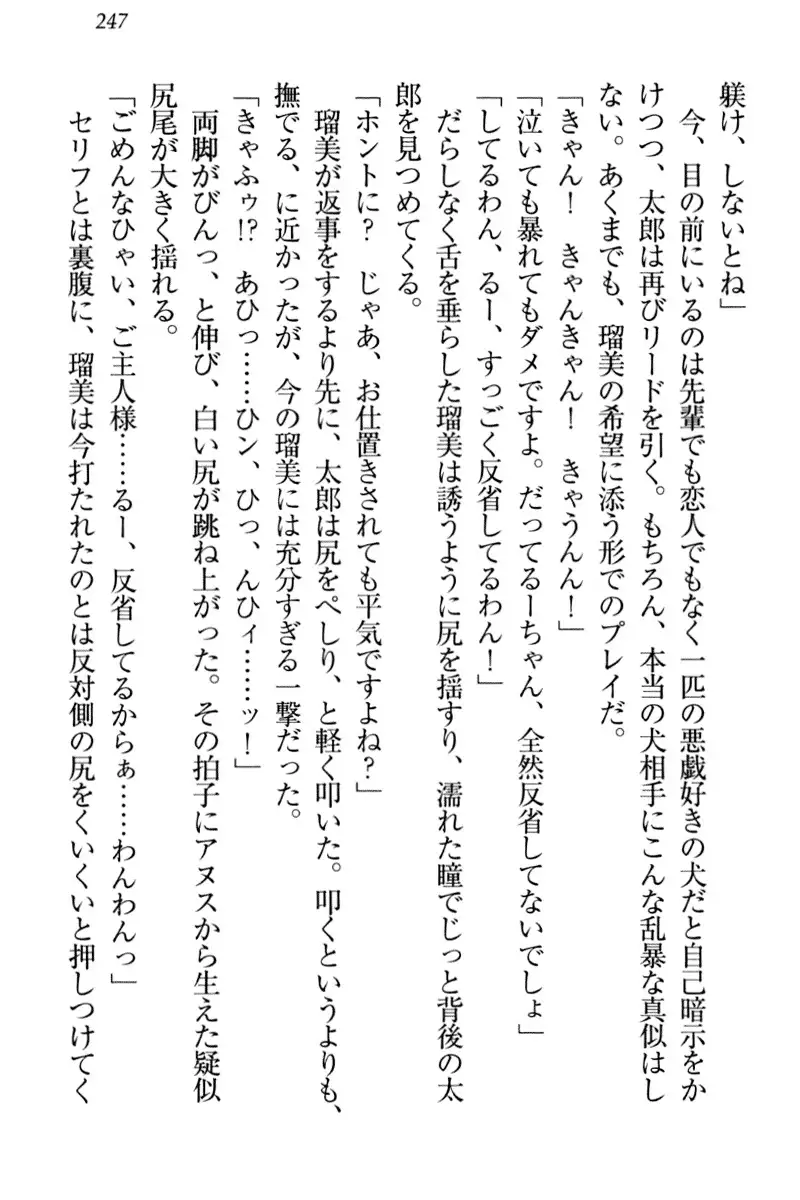 247
躾け、しないとね」
今、目の前にいるのは先輩でも恋人でもなく一匹の悪戯好きの犬だと自己暗示をか
けつつ、太郎は再びリードを引く。もちろん、本当の犬相手にこんな乱暴な真似はし
ない。あくまでも、瑠美の希望に添う形でのプレイだ。
「きゃん！　きゃんきゃん！　きゃうんん！」
「泣いても暴れてもダメですよ。だってるーちゃん、全然反省してないでしょ」
「してるわん、るー、すっごく反省してるわん！」
だらしなく舌を垂らした瑠美は誘うように尻を揺すり、濡れた瞳でじっと背後の太
郎を見つめてくる。
「ホントに？　じゃあ、お仕置きされても平気ですよね？」
瑠美が返事をするより先に、太郎は尻をぺしり、と軽く叩いた。叩くというよりも、
撫でる、に近かったが、今の瑠美には充分すぎる一撃だった。
「きゃふゥ!?　あひっ……ひン、ひっ、んひィ……ッ！」
両脚がびんっ、と伸び、白い尻が跳ね上がった。その拍子にアヌスから生えた疑似
尻尾が大きく揺れる。
「ごめんなひゃい、ご主人様……るー、反省してるからぁ……わんわんっ」
セリフとは裏腹に、瑠美は今打たれたのとは反対側の尻をくいくいと押しつけてく